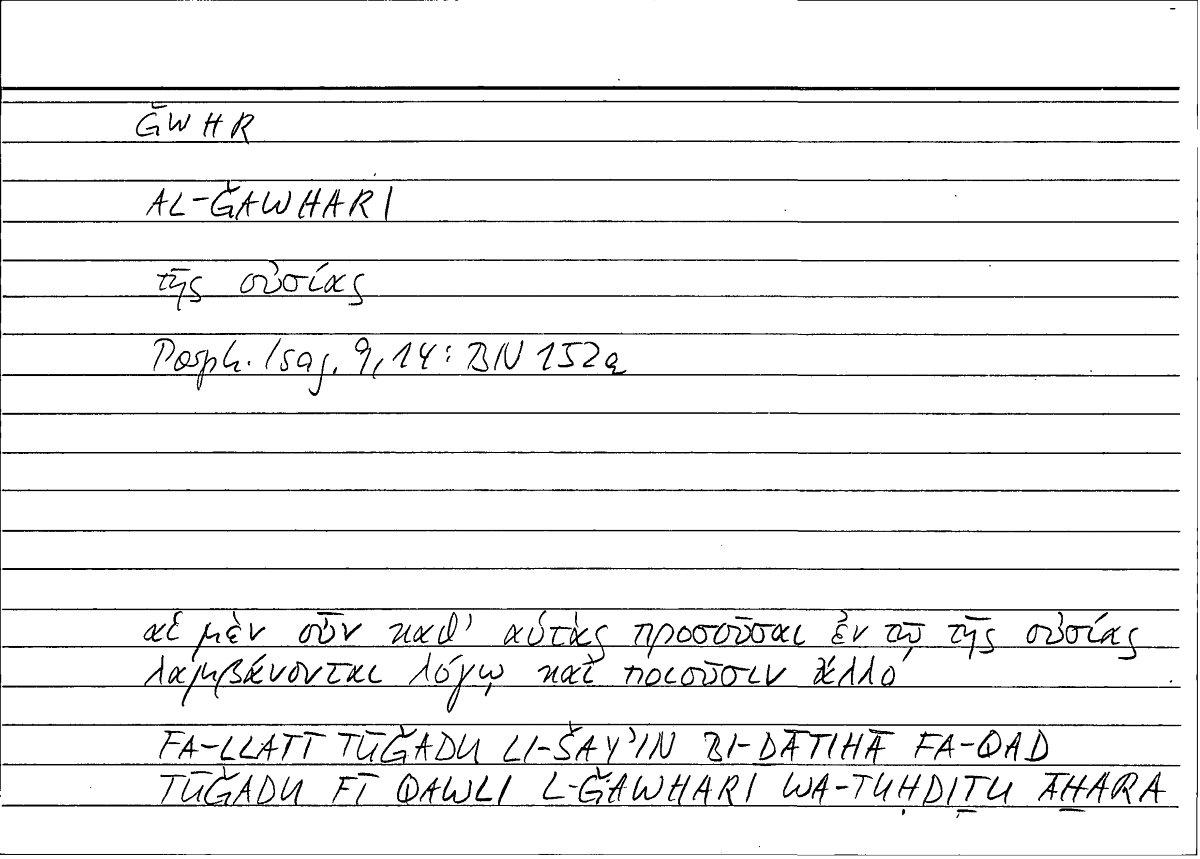 ǦWHR
AL-ǦAWHARI
τῆς οὐσίας
Porph. Isag. 9,14: BN 152a
αἱ μὲν οὖν καθ' αὑτὰς προσοῦσαι ἐν τῷ τῆς οὐσίας
λαμβάνονται λόγῳ καὶ ποιοῦσιν ἄλλο
FA-LLATĪ TŪǦADU LI-ŠAY'IN BI-ḎĀTIHĀ FA-QAD
TŪǦADU FĪ QAWLI L-ǦAWHARI WA-TUḤDIṮU ĀḪARA